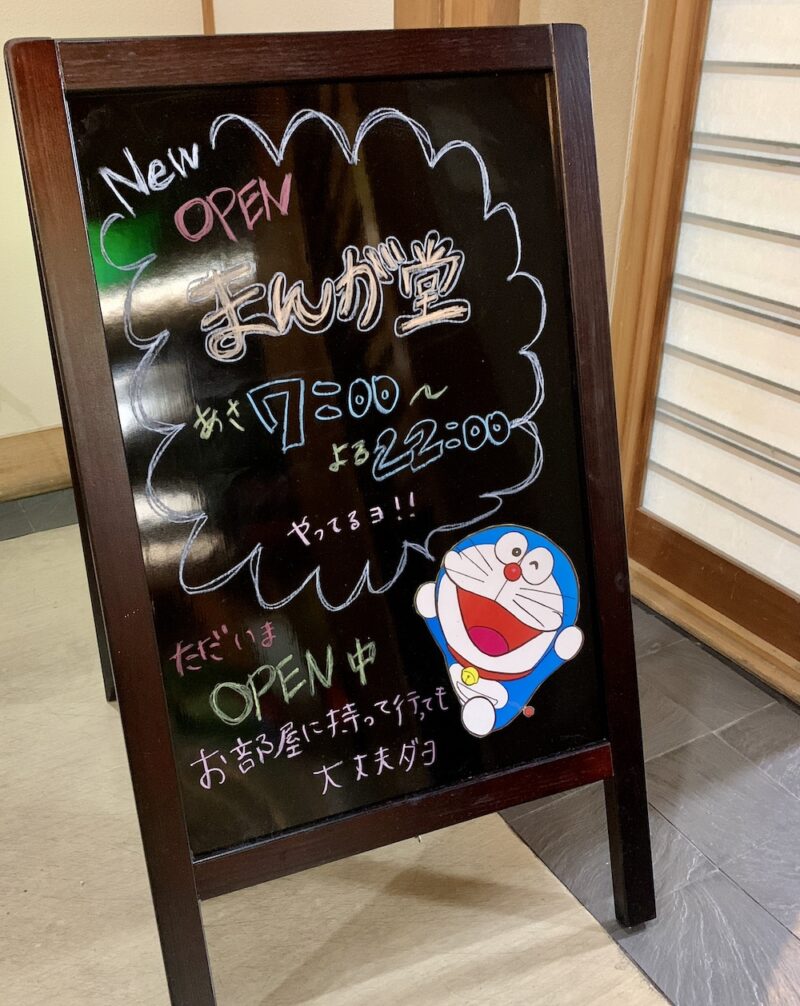 New
OPEN
まんが堂
あさ7:00〜
よる22:00
やってるヨ!!
ただいま
OPEN中
お部屋に持って行っても
大丈夫ダヨ